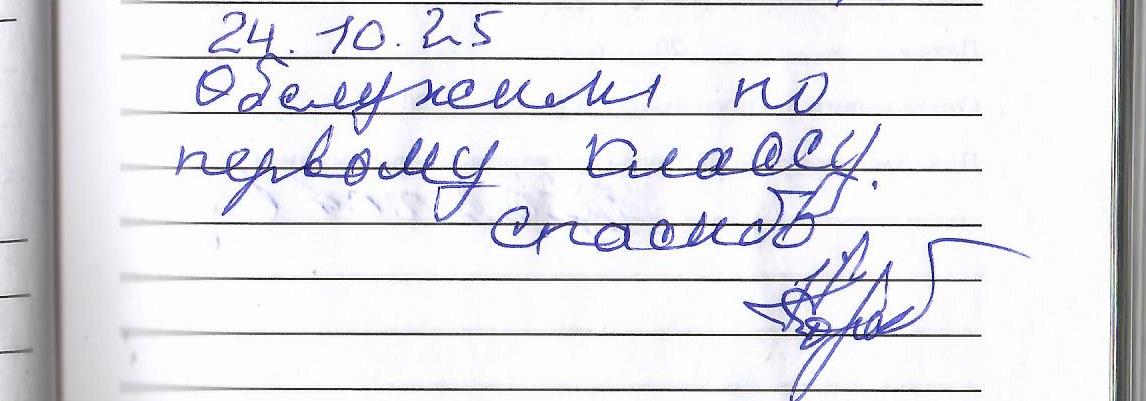 24.10.25
Обслужили по
первому классу.
спасибо